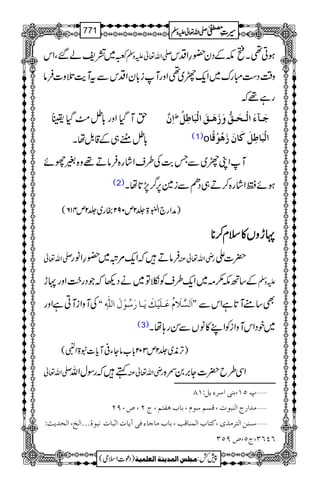 سیرتِ مصطفیٰ صلی اللہ تعالیٰ علیہ وسلم 771
ہوتی تھی۔ فتح مکہ کے دن حضور اقدس صلی اللہ تعالیٰ علیہ وسلم کعبہ میں تشریف لے گئے، اس
وقت دست مبارک میں ایک چھڑی تھی اور آپ زبان اقدس سے یہ آیت تلاوت فرما
رہے تھے کہ
جَآءَ الْحَقُّ وَزَهَقَ الْبَاطِلُ ؕ اِنَّ
الْبَاطِلَ كَانَ زَهُوْقًا ○ (1)
حق آیا اور باطل مٹ گیا یقیناً
باطل مٹنے ہی کے قابل تھا۔
آپ اپنی چھڑی سے جس بت کی طرف اشارہ فرماتے تھے وہ بغیر چھوئے
ہوئے فقط اشارہ کرتے ہی دھم سے زمین پر گر پڑتا تھا۔ (2)
(مدارج النبوۃ جلد۲ ص۲۹۰ بخاری جلد۲ ص۶۱۴)
پہاڑوں کا سلام کرنا
حضرت علی رضی اللہ تعالیٰ عنہ فرماتے ہیں کہ ایک مرتبہ میں حضور انور صلی اللہ تعالیٰ
علیہ وسلم کے ساتھ مکہ مکرمہ میں ایک طرف کو نکلا تو میں نے دیکھا کہ جو درخت اور پہاڑ
بھی سامنے آتا ہے اس سے ”اَلسَّلَامُ عَلَیْكَ یَا رَسُوْلَ اللّٰهِ“ کی آواز آتی ہے اور
میں خود اس آواز کو اپنے کانوں سے سن رہا تھا۔ (3)
(ترمذی جلد۲ ص۲۰۳ باب ماجاء فی آیات نبوۃ النبی)
اسی طرح حضرت جابر بن سمرہ رضی اللہ تعالیٰ عنہ کہتے ہیں کہ رسول اللہ صلی اللہ تعالیٰ
......پ ۱۵، بنی اسرءیل: ۸۱
......مدارج النبوت ، قسم سوم ، باب هفتم ، ج ۲ ، ص ۲۹۰
......سنن الترمذی، کتاب المناقب ، باب ماجاء فی آیات اثبات نبوۃ...الخ، الحدیث:
۳۶۴۶، ج۵، ص ۳۵۹
پیش کش: مجلس المدینة العلمیة (دعوتِ اسلامی)